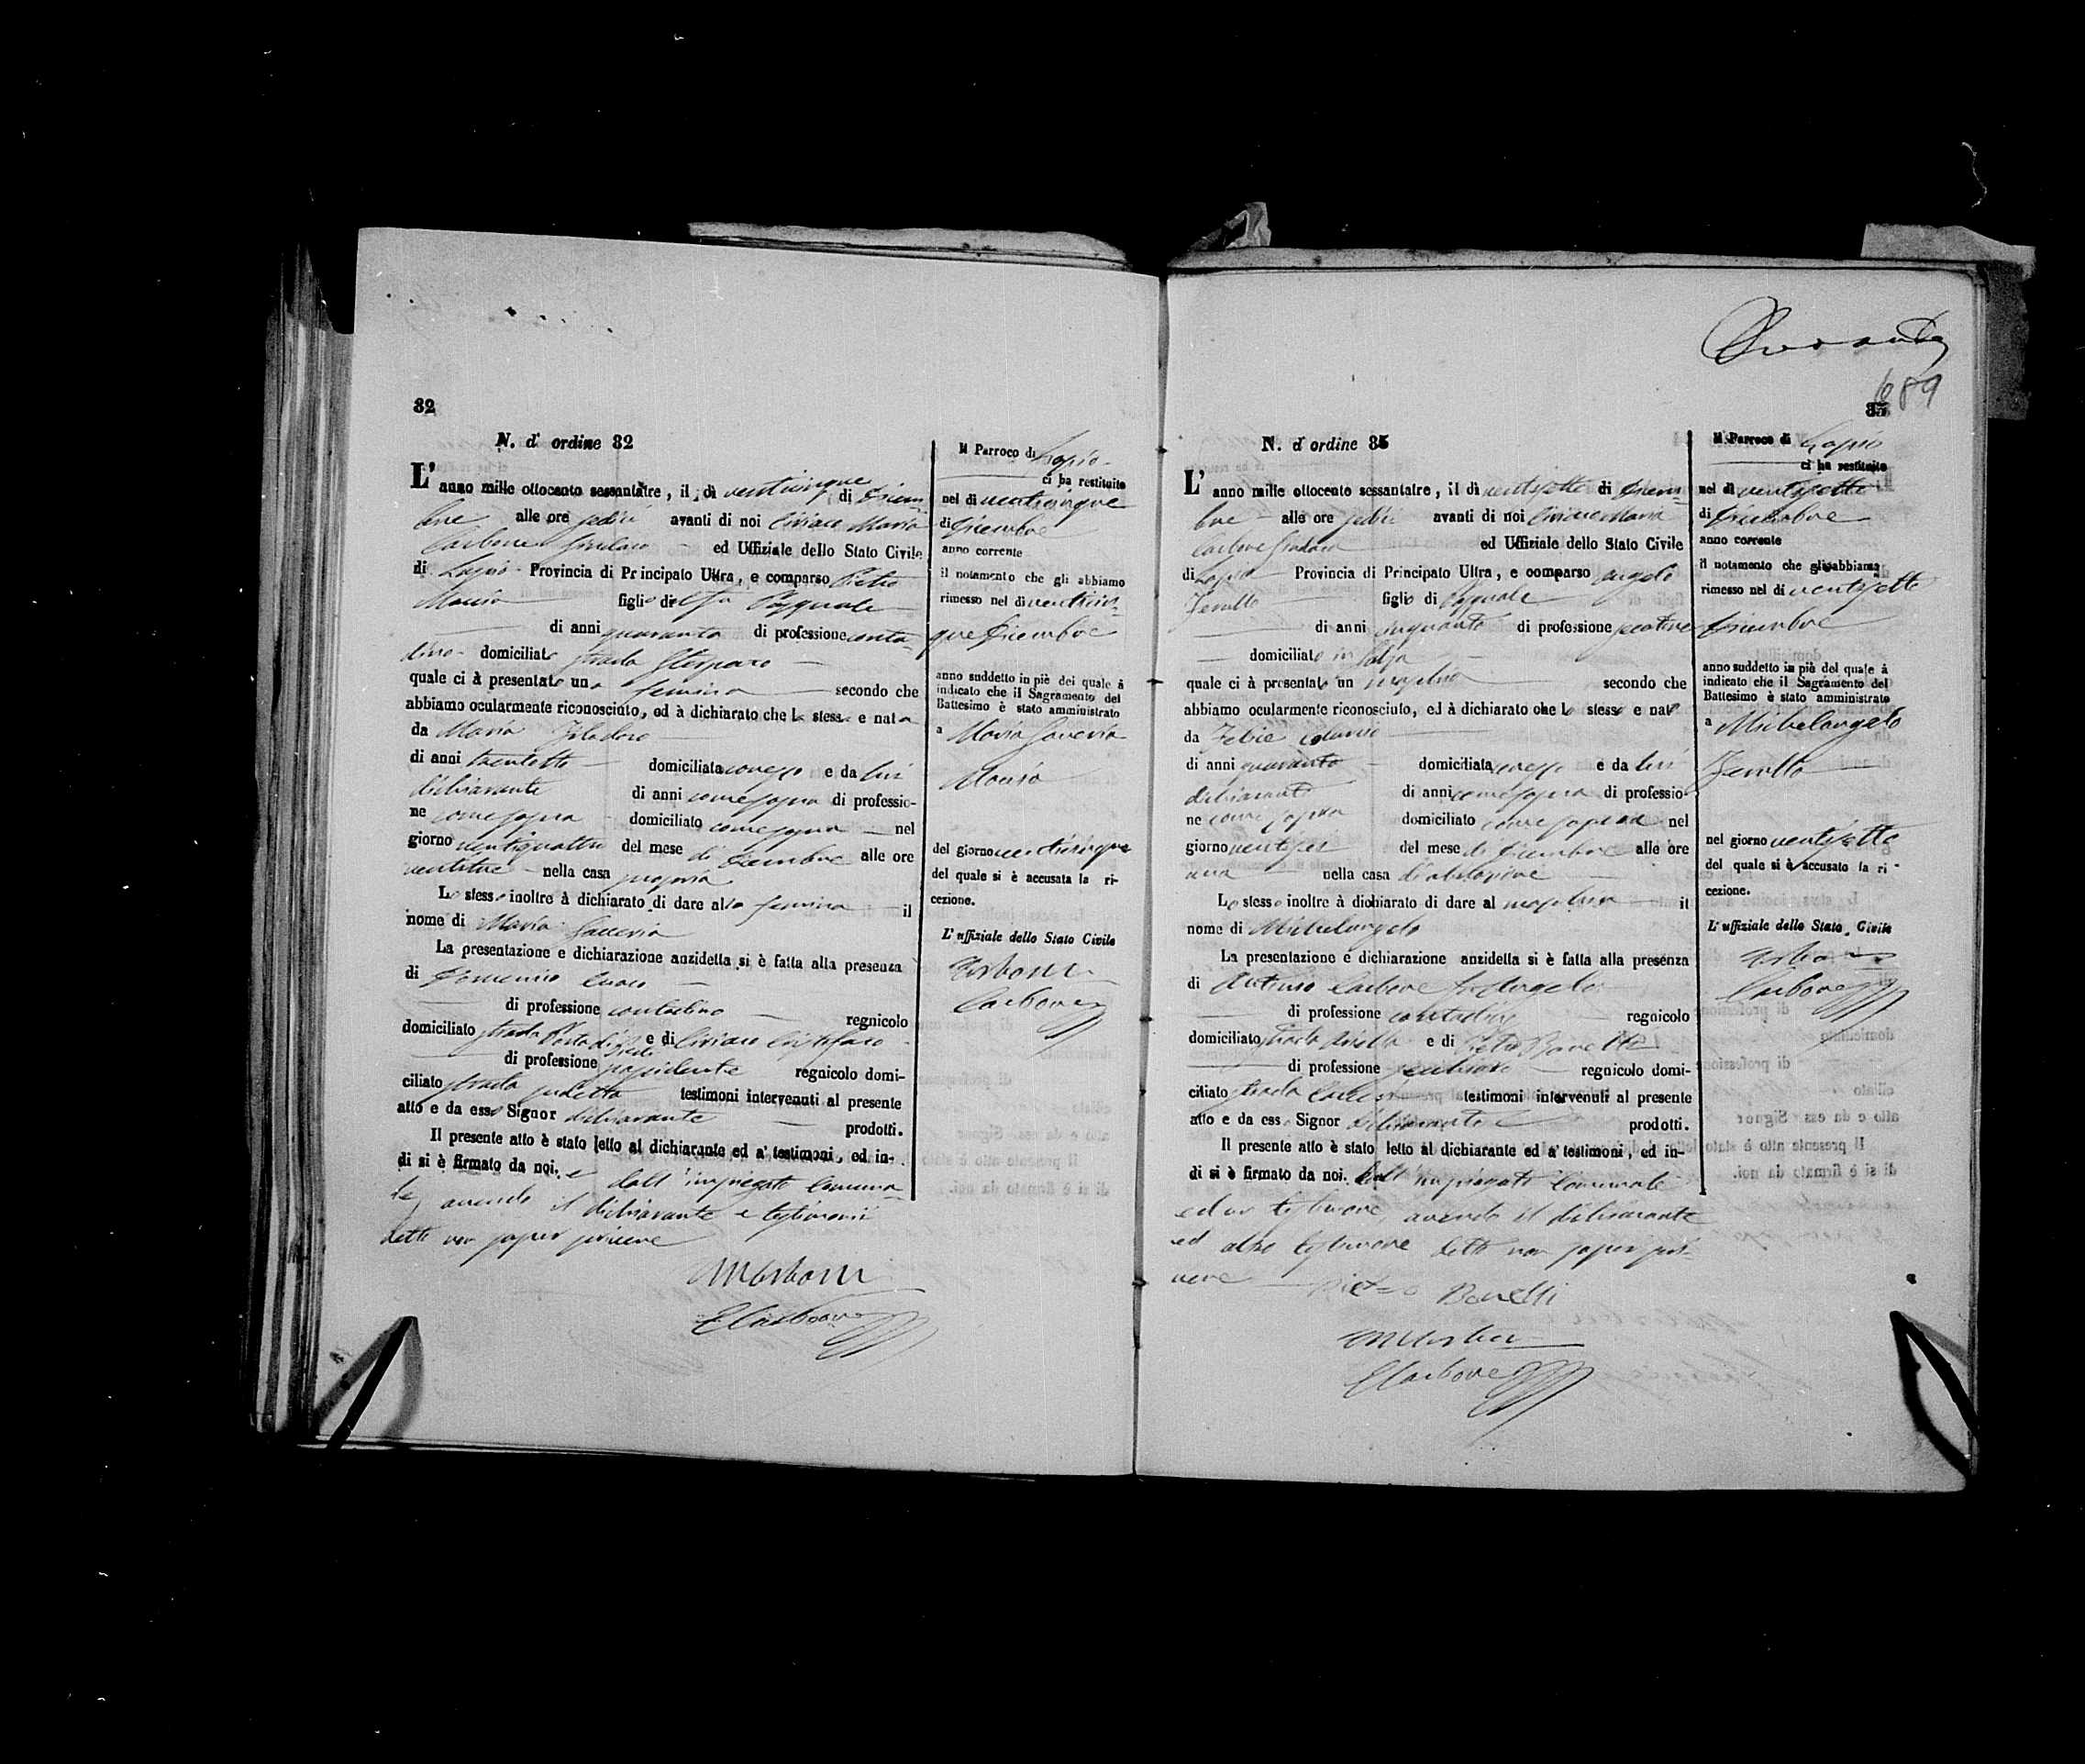 82
N. d' ordine 82
L' anno mille ottocento sessantatre, il dì venticinque di Dicem-
bre alle ore sedici avanti di noi Ciriaco Maria
Carbone Sindaco ed Uffiziale dello Stato Civile
di Lapio Provincia di Principato Ultra, e comparso Pietro
figlio di Pasquale
di anni quaranta di professione conta-
dino domiciliato strada
quale ci à presentato una femina secondo che
abbiamo ocularmente riconosciuto, ed à dichiarato che la stessa e nata
da Maria
di anni trentotto domiciliata e da lui
dichiarante di anni come sopra di professio-
ne come sopra domiciliato come sopra nel
giorno ventiquattro del mese di Dicembre alle ore
ventitre nella casa propria
Lo stesso inoltre à dichiarato di dare alla femina il
nome di Maria Saveria
La presentazione e dichiarazione anzidetta si è fatta alla presenza
di Domenico
di professione contadino regnicolo
domiciliato strada e di Ciriaco
di professione possidente regnicolo domi-
ciliato strada sudetta testimoni intervenuti al presente
atto e da esso Signor dichiarante prodotti.
Il presente atto è stato letto al dichiarante ed a' testimoni, ed in-
di si è firmato da noi e dall' impiegato Comuna-
le, avendo il dichiarante e testimonii
detto non saper scrivere
Carbone
Il Parroco di Lapio
ci ha restituito
nel dì venticinque
di Dicembre
anno corrente
il notamento che gli abbiamo
rimesso nel dì venticin-
que Dicembre
anno suddetto in piè del quale à
indicato che il Sagramento del
Battesimo è stato amministrato
a Maria Saveria
del giorno venticinque
del quale si è accusata la ri-
cezione.
L' uffiziale dello Stato Civile
Carbone
689
83
N. d' ordine 83
L' anno mille ottocento sessantatre, il dì ventisette di Dicem-
bre alle ore sedici avanti di noi Ciriaco Maria
Carbone Sindaco ed Uffiziale dello Stato Civile
di Lapio Provincia di Principato Ultra, e comparso Angelo
Zerullo figlio di Pasquale
di anni cinquanta di professione
domiciliato in Salza
quale ci à presentato un maschio secondo che
abbiamo ocularmente riconosciuto, ed à dichiarato che lo stesso e nato
da
di anni quaranta domiciliata e da lui
dichiarante di anni come sopra di professio-
ne come sopra domiciliato come sopra nel
giorno ventisei del mese di Dicembre alle ore
una nella casa di abitazione
Lo stesso inoltre à dichiarato di dare al maschio il
nome di Michelangelo
La presentazione e dichiarazione anzidetta si è fatta alla presenza
di Antonio Carbone fu Angelo
di professione contadino regnicolo
domiciliato strada e di Pietro Bonelli
di professione regnicolo domi-
ciliato strada testimoni intervenuti al presente
atto e da esso Signor dichiarante prodotti.
Il presente atto è stato letto al dichiarante ed a' testimoni, ed in-
di si è firmato da noi dall' impiegato Comunale
ed un testimone, avendo il dichiarante
ed altro testimone detto non saper scri-
vere
Pietro Bonelli
Carbone
Il Parroco di Lapio
ci ha restituito
nel dì ventisette
di Dicembre
anno corrente
il notamento che gli abbiamo
rimesso nel dì ventisette
Dicembre
anno suddetto in piè del quale à
indicato che il Sagramento del
Battesimo è stato amministrato
a Michelangelo
Zerullo
nel giorno ventisette
del quale si è accusato la ri-
cezione.
L' uffiziale dello Stato Civile
Carbone